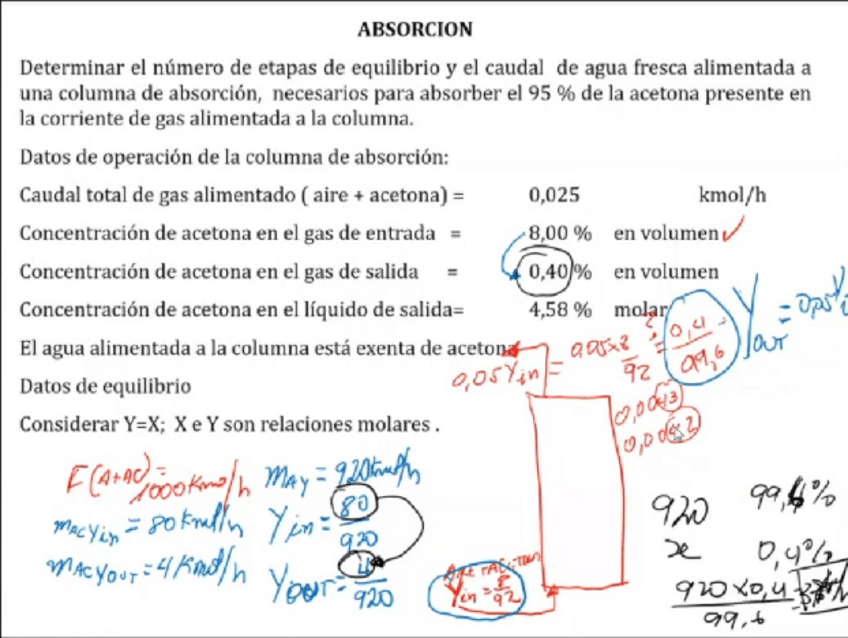 ABSORCION
Determinar el número de etapas de equilibrio y el caudal de agua fresca alimentada a
una columna de absorción, necesarios para absorber el 95 % de la acetona presente en
la corriente de gas alimentada a la columna.
Datos de operación de la columna de absorción:
Caudal total de gas alimentado ( aire + acetona) = 0,025 kmol/h
Concentración de acetona en el gas de entrada = 8,00 % en volumen
Concentración de acetona en el gas de salida = 0,40 % en volumen
Concentración de acetona en el líquido de salida= 4,58 % molar
El agua alimentada a la columna está exenta de acetona
Datos de equilibrio
Considerar Y=X; X e Y son relaciones molares .
0,05 Yin = 0,05x8/92 = 0,4/99,6
Yout = 0,05 Yi
0,0043
F(A+AC)= 1000 Kmol/h
mACYin = 80 Kmol/h
mACYOUT = 4 Kmol/h
MAY = 920 Kmol/h
Yin = 80/920
YOUT = 4/920
Yin = 8/92
920 99,6%
x 0,4%
920x0,4
99,6